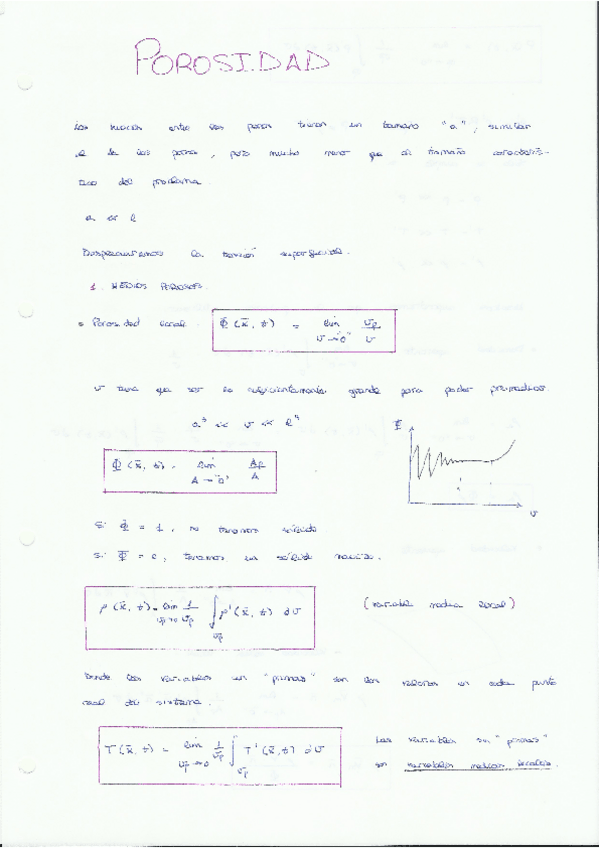 POROSIDAD
Los huecos entre los poros tienen un tamaño "a", similar
al de los poros, pero mucho menor que el tamaño caracterís-
tico del problema.
a << L
Despreciaremos la tensión superficial.
1. MEDIOS POROSOS.
Porosidad local: Φ(x̄, t) = lim v→"0" vp/v
v tiene que ser lo suficientemente grande para poder promediar
a³ << v << L³
Φ
Φ(x̄, t) = lim A→"0" Ap/A
v
Si Φ = 1, no tenemos sólido.
Si Φ = 0, tenemos un sólido macizo.
ρ(x̄, t) = lim vp→0 1/vp ∫vp ρ'(x̄, t) dv (variable media local)
Donde las variables con "primas" son los valores en cada punto
real del sistema.
T(x̄, t) = lim vp→0 1/vp ∫vp T'(x̄, t) dv
Las variables sin "primas"
son variables medias locales.